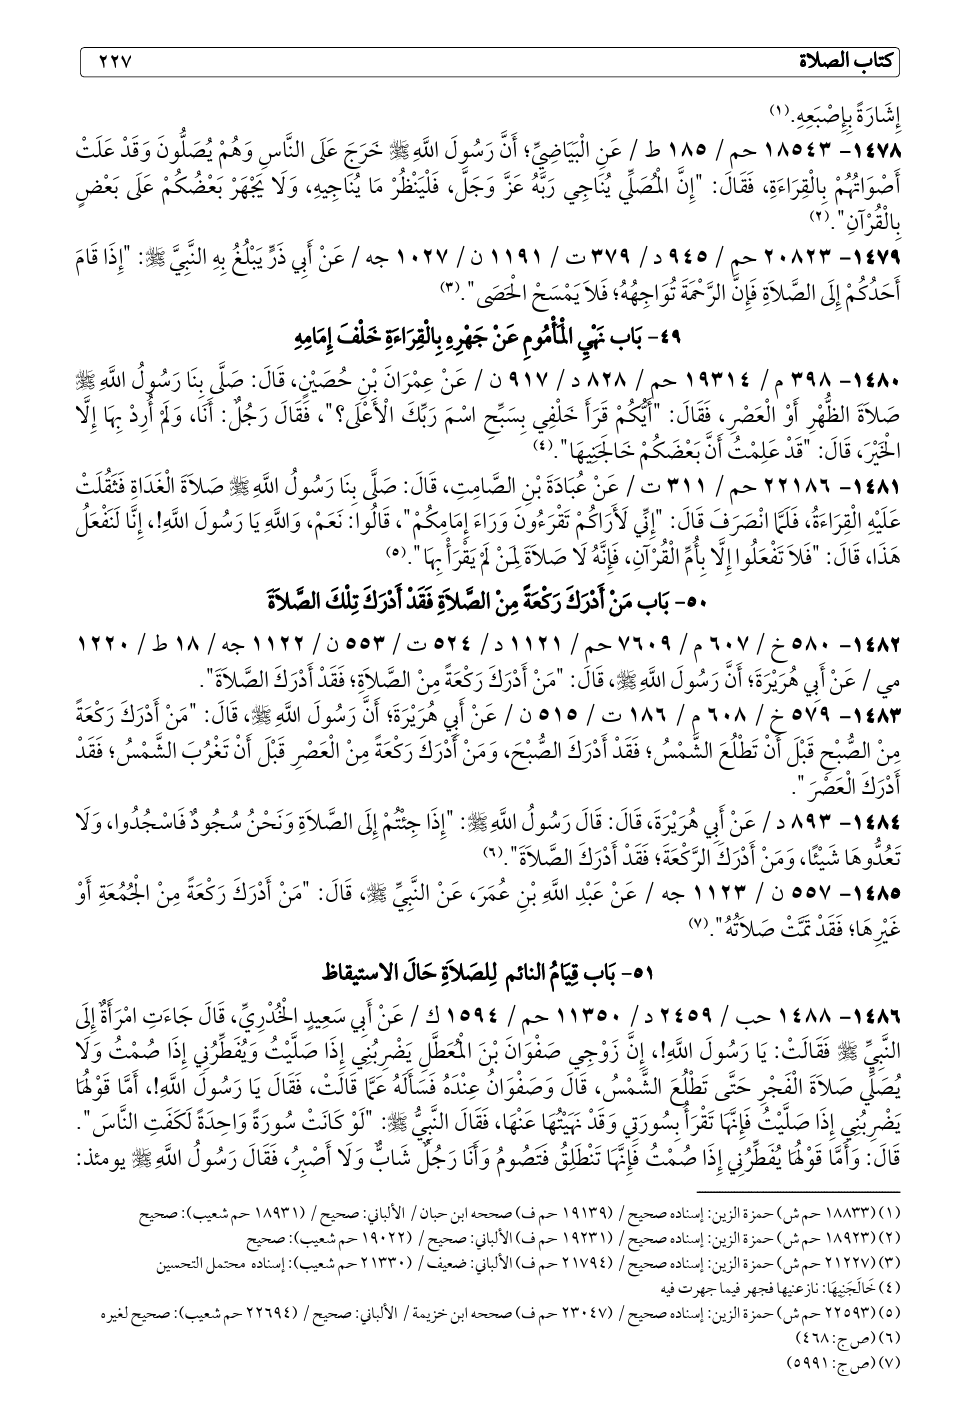 كتاب الصلاة ٢٢٧
إِشَارَةً بِإِصْبَعِهِ.(١)
١٤٧٨- ١٨٥٤٣ حم / ١٨٥ ط / عَنِ الْبَيَاضِيِّ؛ أَنَّ رَسُولَ اللَّهِ ﷺ خَرَجَ عَلَى النَّاسِ وَهُمْ يُصَلُّونَ وَقَدْ عَلَتْ
أَصْوَاتُهُمْ بِالْقِرَاءَةِ، فَقَالَ: "إِنَّ الْمُصَلِّي يُنَاجِي رَبَّهُ عَزَّ وَجَلَّ، فَلْيَنْظُرْ مَا يُنَاجِيهِ، وَلَا يَجْهَرْ بَعْضُكُمْ عَلَى بَعْضٍ
بِالْقُرْآنِ".(٢)
١٤٧٩- ٢٠٨٢٣ حم / ٩٤٥ د / ٣٧٩ ت / ١١٩١ ن / ١٠٢٧ جه / عَنْ أَبِي ذَرٍّ يَبْلُغُ بِهِ النَّبِيَّ ﷺ: "إِذَا قَامَ
أَحَدُكُمْ إِلَى الصَّلاَةِ فَإِنَّ الرَّحْمَةَ تُوَاجِهُهُ؛ فَلاَ يَمْسَحْ الْحَصَى".(٣)
٤٩- بَاب نَهْيِ الْمَأْمُومِ عَنْ جَهْرِهِ بِالْقِرَاءَةِ خَلْفَ إِمَامِهِ
١٤٨٠- ٣٩٨ م / ١٩٣١٤ حم / ٨٢٨ د / ٩١٧ ن / عَنْ عِمْرَانَ بْنِ حُصَيْنٍ، قَالَ: صَلَّى بِنَا رَسُولُ اللَّهِ ﷺ
صَلاَةَ الظُّهْرِ أَوْ الْعَصْرِ، فَقَالَ: "أَيُّكُمْ قَرَأَ خَلْفِي بِسَبِّحِ اسْمَ رَبِّكَ الْأَعْلَى؟"، فَقَالَ رَجُلٌ: أَنَا، وَلَمْ أُرِدْ بِهَا إِلَّا
الْخَيْرَ، قَالَ: "قَدْ عَلِمْتُ أَنَّ بَعْضَكُمْ خَالَجَنِيهَا".(٤)
١٤٨١- ٢٢١٨٦ حم / ٣١١ ت / عَنْ عُبَادَةَ بْنِ الصَّامِتِ، قَالَ: صَلَّى بِنَا رَسُولُ اللَّهِ ﷺ صَلاَةَ الْغَدَاةِ فَثَقُلَتْ
عَلَيْهِ الْقِرَاءَةُ، فَلَمَّا انْصَرَفَ قَالَ: "إِنِّي لَأَرَاكُمْ تَقْرَءُونَ وَرَاءَ إِمَامِكُمْ"، قَالُوا: نَعَمْ، وَاللَّهِ يَا رَسُولَ اللَّهِ!، إِنَّا لَنَفْعَلُ
هَذَا، قَالَ: "فَلاَ تَفْعَلُوا إِلَّا بِأُمِّ الْقُرْآنِ، فَإِنَّهُ لَا صَلاَةَ لِمَنْ لَمْ يَقْرَأْ بِهَا".(٥)
٥٠- بَاب مَنْ أَدْرَكَ رَكْعَةً مِنْ الصَّلاَةِ فَقَدْ أَدْرَكَ تِلْكَ الصَّلاَةَ
١٤٨٢- ٥٨٠ خ / ٦٠٧ م / ٧٦٠٩ حم / ١١٢١ د / ٥٢٤ ت / ٥٥٣ ن / ١١٢٢ جه / ١٨ ط / ١٢٢٠
مي / عَنْ أَبِي هُرَيْرَةَ؛ أَنَّ رَسُولَ اللَّهِ ﷺ، قَالَ: "مَنْ أَدْرَكَ رَكْعَةً مِنْ الصَّلاَةِ؛ فَقَدْ أَدْرَكَ الصَّلاَةَ".
١٤٨٣- ٥٧٩ خ / ٦٠٨ م / ١٨٦ ت / ٥١٥ ن / عَنْ أَبِي هُرَيْرَةَ؛ أَنَّ رَسُولَ اللَّهِ ﷺ، قَالَ: "مَنْ أَدْرَكَ رَكْعَةً
مِنْ الصُّبْحِ قَبْلَ أَنْ تَطْلُعَ الشَّمْسُ؛ فَقَدْ أَدْرَكَ الصُّبْحَ، وَمَنْ أَدْرَكَ رَكْعَةً مِنْ الْعَصْرِ قَبْلَ أَنْ تَغْرُبَ الشَّمْسُ؛ فَقَدْ
أَدْرَكَ الْعَصْرَ".
١٤٨٤- ٨٩٣ د / عَنْ أَبِي هُرَيْرَةَ، قَالَ: قَالَ رَسُولُ اللَّهِ ﷺ: "إِذَا جِئْتُمْ إِلَى الصَّلاَةِ وَنَحْنُ سُجُودٌ فَاسْجُدُوا، وَلَا
تَعُدُّوهَا شَيْئًا، وَمَنْ أَدْرَكَ الرَّكْعَةَ؛ فَقَدْ أَدْرَكَ الصَّلاَةَ".(٦)
١٤٨٥- ٥٥٧ ن / ١١٢٣ جه / عَنْ عَبْدِ اللَّهِ بْنِ عُمَرَ، عَنْ النَّبِيِّ ﷺ، قَالَ: "مَنْ أَدْرَكَ رَكْعَةً مِنْ الْجُمُعَةِ أَوْ
غَيْرِهَا؛ فَقَدْ تَمَّتْ صَلاَتُهُ".(٧)
٥١- بَاب قِيَامُ النائم لِلصَلاَةِ حَالَ الاستيقاظ
١٤٨٦- ١٤٨٨ حب / ٢٤٥٩ د / ١١٣٥٠ حم / ١٥٩٤ ك / عَنْ أَبِي سَعِيدٍ الْخُدْرِيِّ، قَالَ جَاءَتِ امْرَأَةٌ إِلَى
النَّبِيِّ ﷺ فَقَالَتْ: يَا رَسُولَ اللَّهِ!، إِنَّ زَوْجِي صَفْوَانَ بْنَ الْمُعَطَّلِ يَضْرِبُنِي إِذَا صَلَّيْتُ وَيُفَطِّرُنِي إِذَا صُمْتُ وَلَا
يُصَلِّي صَلاَةَ الْفَجْرِ حَتَّى تَطْلُعَ الشَّمْسُ، قَالَ وَصَفْوَانُ عِنْدَهُ فَسَأَلَهُ عَمَّا قَالَتْ، فَقَالَ يَا رَسُولَ اللَّهِ!، أَمَّا قَوْلُهَا
يَضْرِبُنِي إِذَا صَلَّيْتُ فَإِنَّهَا تَقْرَأُ بِسُورَتِي وَقَدْ نَهَيْتُهَا عَنْهَا، فَقَالَ النَّبِيُّ ﷺ: "لَوْ كَانَتْ سُورَةً وَاحِدَةً لَكَفَتِ النَّاسَ".
قَالَ: وَأَمَّا قَوْلُهَا يُفَطِّرُنِي إِذَا صُمْتُ فَإِنَّهَا تَنْطَلِقُ فَتَصُومُ وَأَنَا رَجُلٌ شَابٌّ وَلَا أَصْبِرُ، فَقَالَ رَسُولُ اللَّهِ ﷺ يومئذ:
(١) (١٨٨٣٣ حم ش) حمزة الزين: إسناده صحيح / (١٩١٣٩ حم ف) صححه ابن حبان / الألباني: صحيح / (١٨٩٣١ حم شعيب): صحيح
(٢) (١٨٩٢٣ حم ش) حمزة الزين: إسناده صحيح / (١٩٢٣١ حم ف) الألباني: صحيح / (١٩٠٢٢ حم شعيب): صحيح
(٣) (٢١٢٢٧ حم ش) حمزة الزين: إسناده صحيح / (٢١٧٩٤ حم ف) الألباني: ضعيف / (٢١٣٣٠ حم شعيب): إسناده محتمل التحسين
(٤) خَالَجَنِيهَا: نازعنيها فجهر فيما جهرت فيه
(٥) (٢٢٥٩٣ حم ش) حمزة الزين: إسناده صحيح / (٢٣٠٤٧ حم ف) صححه ابن خزيمة / الألباني: صحيح / (٢٢٦٩٤ حم شعيب): صحيح لغيره
(٦) (ص ج: ٤٦٨)
(٧) (ص ج: ٥٩٩١)